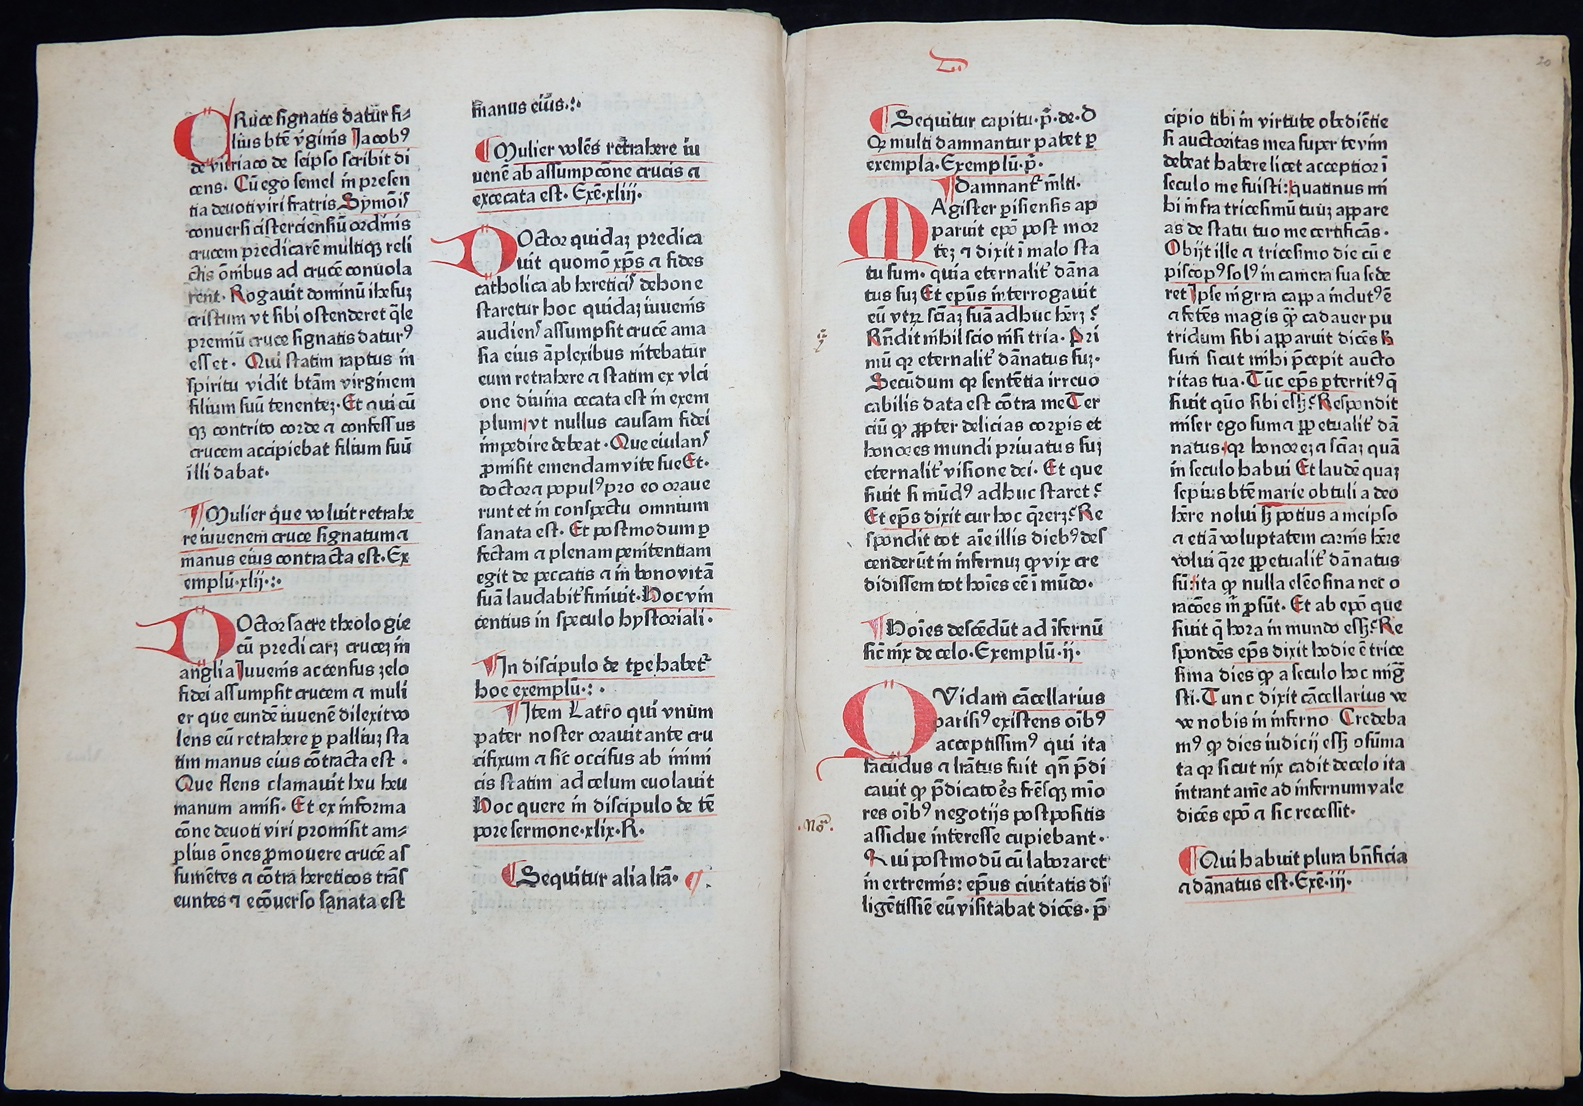 CRuce signatis datur fi-
lius bte v̄ginis Jacobꝰ
de vitriaco de seipso scribit di
cens. Cū ego semel in presen
tia deuoti viri fratris Symōis
conuersi cisterciensiū ordinis
crucem predicarē multiqꝫ reli
ctis ōmbus ad crucē conuola
rent. Rogauit dominū ihesuꝫ
cristum vt sibi ostenderet q̄le
premiū cruce signatis daturꝰ
esset. Qui statim raptus in
spiritu vidit btām virginem
filium suū tenenteꝫ. Et qui cū
qꝫ contrito corde ⁊ confessus
crucem accipiebat filium suū
illi dabat.
¶Mulier que voluit retrahe
re iuuenem cruce signatum ⁊
manus eius contracta est. Ex
emplū. xlij.:.
DOctor sacre theologie
cū predicarꝫ cruceꝫ in
anglia Juuenis accensus zelo
fidei assumpsit crucem ⁊ muli
er que eundē iuuenē dilexit vo
lens eū retrahere p̱ palliuꝫ sta
tim manus eius cōtracta est.
Que flens clamauit heu heu
manum amisi. Et ex informa
cōne deuoti viri promisit am-
plius ōnes ꝓmouere crucē as
sumētes ⁊ cōtra hereticos trās
euntes ⁊ ecōuerso sanata est
manus eiūs.:.
¶Mulier volēs retrahere iu
uenē ab assumpcōne crucis ⁊
excecata est. Exē. xliij.
DOctor quidaꝫ predica
uit quomō xp̄s ⁊ fides
catholica ab hereticis dehone
staretur hoc quidaꝫ iuuenis
audiens assumpsit crucē ama
sia eius āplexibus nitebatur
eum retrahere ⁊ statim ex vlci
one diuina cecata est in exem
plum vt nullus causam fidei
impedire debeat. Que eiulans
ꝓmisit emendam vite sue Et.
doctor ⁊ populꝰ pro eo oraue
runt et in conspectu omnium
sanata est. Et postmodum p̱
fectam ⁊ plenam penitentiam
egit de peccatis ⁊ in bono vitā
suā laudabit̄ finiuit. Hoc vin
centius in speculo hystoriali.
¶In discipulo de tp̄e habet̄
hoc exemplū.:.
¶Item Latro qui vnum
pater noster orauit ante cru
cifixum ⁊ sic occisus ab inimi
cis statim ad celum euolauit
Hoc quere in discipulo de tē
pore sermone. xlix. R.
¶Sequitur alia lrā. ¶.
D
20
¶Sequitur capitu. p̄. de. D
Qꝫ multi damnantur patet p̱
exempla. Exemplū. p̄.
¶Damnant̄ mlti.
MAgister parisiensis ap
paruit epō post mor
teꝫ ⁊ dixit i malo sta
tu sum. quia eternalit̄ dāna
tus suꝫ Et ep̄us interrogauit
eū vtꝝ sciāꝫ suā adhuc hērꝫ?
Rn̄dit nihil scio nisi tria. Pri
mū qꝫ eternalit̄ dānatus suꝫ.
Secūdum qꝫ sentētia irreuo
cabilis data est cōtra me Ter
ciū ꝙ ꝓpter delicias corpis et
honores mundi priuatus suꝫ
eternalit̄ visione dei. Et que
siuit si mūdꝰ adhuc staret?
Et ep̄s dixit cur hoc q̄rerꝫ? Re
spondit tot aīe illis diebꝰ des
cenderūt in infernuꝫ ꝙ vix cre
didissem tot hoīes eē i mūdo.
¶Hoīes descēdūt ad ifernū
sic̄ nix de celo. Exemplū. ij.
QVidam cācellarius
parisiꝰ existens oībꝰ
acceptissimꝰ qui ita
facūdus ⁊ lrātus fuit qn̄ p̄di
cauit ꝙ p̄dicatoēs frēsqꝫ mīo
res oībꝰ negotijs postpositis
assidue interesse cupiebant.
Kui postmodū cū laboraret
in extremis: ep̄us ciuitatis di
ligētissie eū visitabat dicēs. p̄
cipio tibi in virtute obediētie
si auctoritas mea super te vim
debeat habere licet acceptior ī
seculo me fuisti: quatinus mi
hi infra tricesimū tuūꝫ appare
as de statu tuo me certificās.
Obijt ille ⁊ tricesimo die cū e
piscopꝰ solꝰ in camera sua sede
ret Ipse nigra cappa indutꝰ ē
⁊ fetēs magis ꝙ cadauer pu
tridum sibi apparuit dicēs A
sum sicut mihi p̄cepit aucto
ritas tua. Tūc ep̄s p̱territꝰ q̄
siuit quō sibi essꝫ? Respondit
miser ego sum ⁊ ꝑpetualit̄ dā
natus. qꝫ honoreꝫ ⁊ sciaꝫ quā
in seculo habui Et laudē quaꝫ
sepius btē marie obtuli a deo
hēre nolui sꝫ potius a meipso
⁊ etiā voluptatem carnis hēre
volui q̄re ꝑpetualit̄ dānatus
sū: ita ꝙ nulla eleosina nec o
racōes m̄ ꝓsūt. Et ab epō que
siuit q̄ hora in mundo essꝫ? Re
spondēs ep̄s dixit hodie ē trice
sima dies ꝙ a seculo hoc mig̃
sti. Tunc dixit cācellarius ve
ve nobis in inferno Credeba
mꝰ ꝙ dies iudicij essꝫ ꝯsūma
ta qꝫ sicut nix cadit de celo ita
intrant aīe ad infernum vale
dicēs epō ⁊ sic recessit.
¶Qui habuit plura bn̄ficia
⁊ dānatus est. Exē. iij.